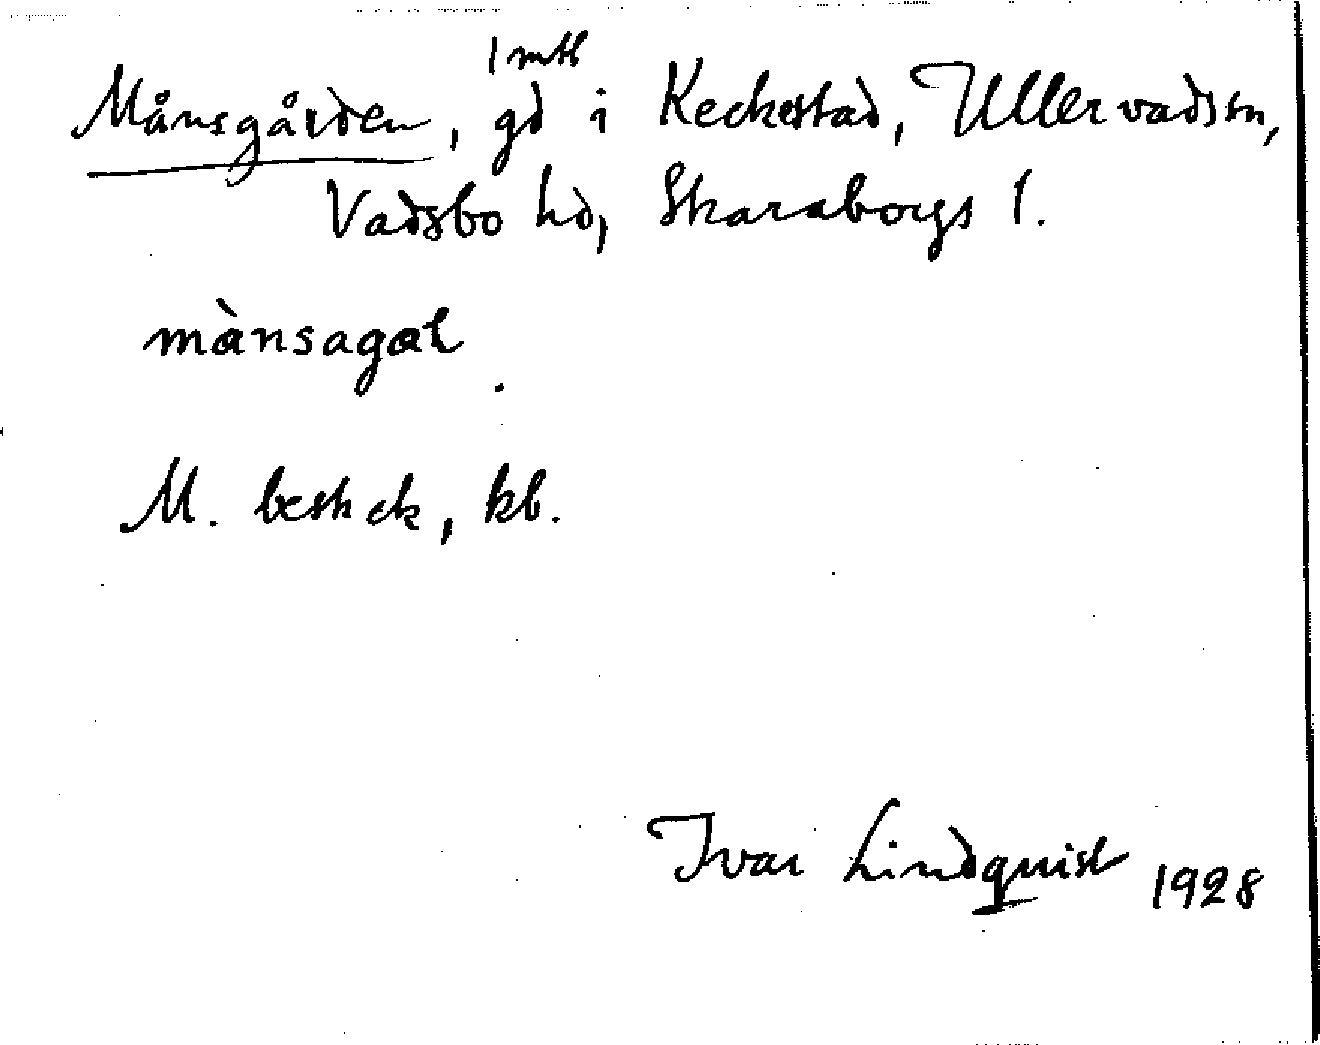 1 mtl
Månsgården, gd i Keckestad, Ullervads sn,
Vadsbo hd, Skaraborgs l.
mànsagaɫ
M. besh ck, kb.
Ivar Lindquist 1928